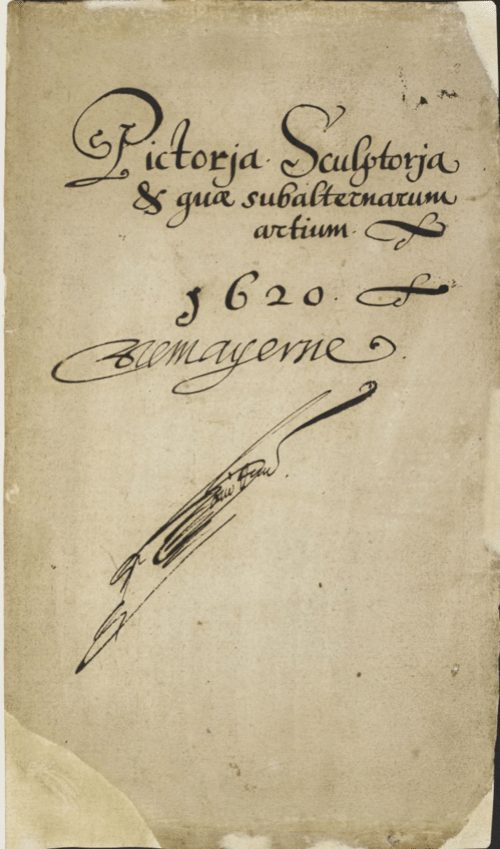 Pictorja. Sculptorja
& quæ subalternarum
artium.
1620.
Demayerne.